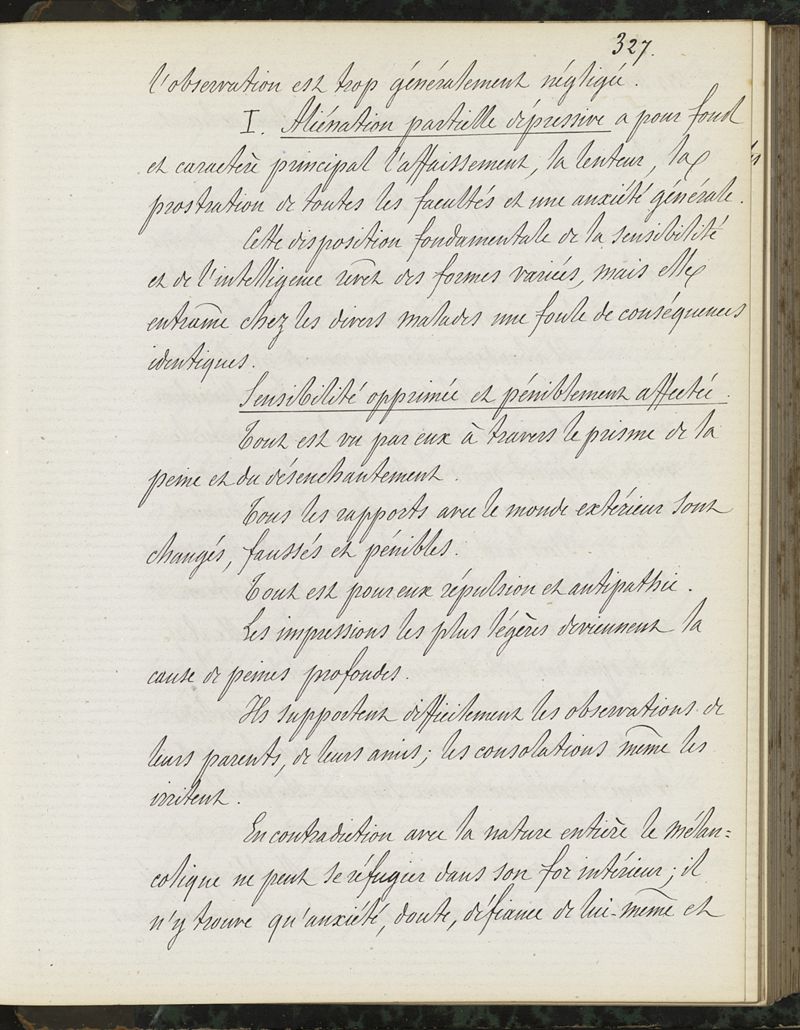 327.
l'observation est trop généralement négligée.
I. Aliénation partielle dépressive a pour fond
et caractère principal l'affaissement, la lenteur, la
prostration de toutes les facultés et une anxiété générale.
Cette disposition fondamentale de la sensibilité
et de l'intelligence revêt des formes variées, mais elle
entraîne chez les divers malades une foule de conséquences
identiques.
Sensibilité opprimée et péniblement affectée.
Tout est vu par eux à travers le prisme de la
peine et du désenchantement.
Tous les rapports avec le monde extérieur sont
changés, faussés et pénibles.
Tout est pour eux répulsion et antipathie.
Les impressions les plus légères deviennent la
cause de peines profondes.
Ils supportent difficilement les observations de
leurs parents, de leurs amis; les consolations même les
irritent.
En contradiction avec la nature entière le mélan=
colique ne peut se réfugier dans son for intérieur; il
n'y trouve qu'anxiété, doute, défiance de lui-même et